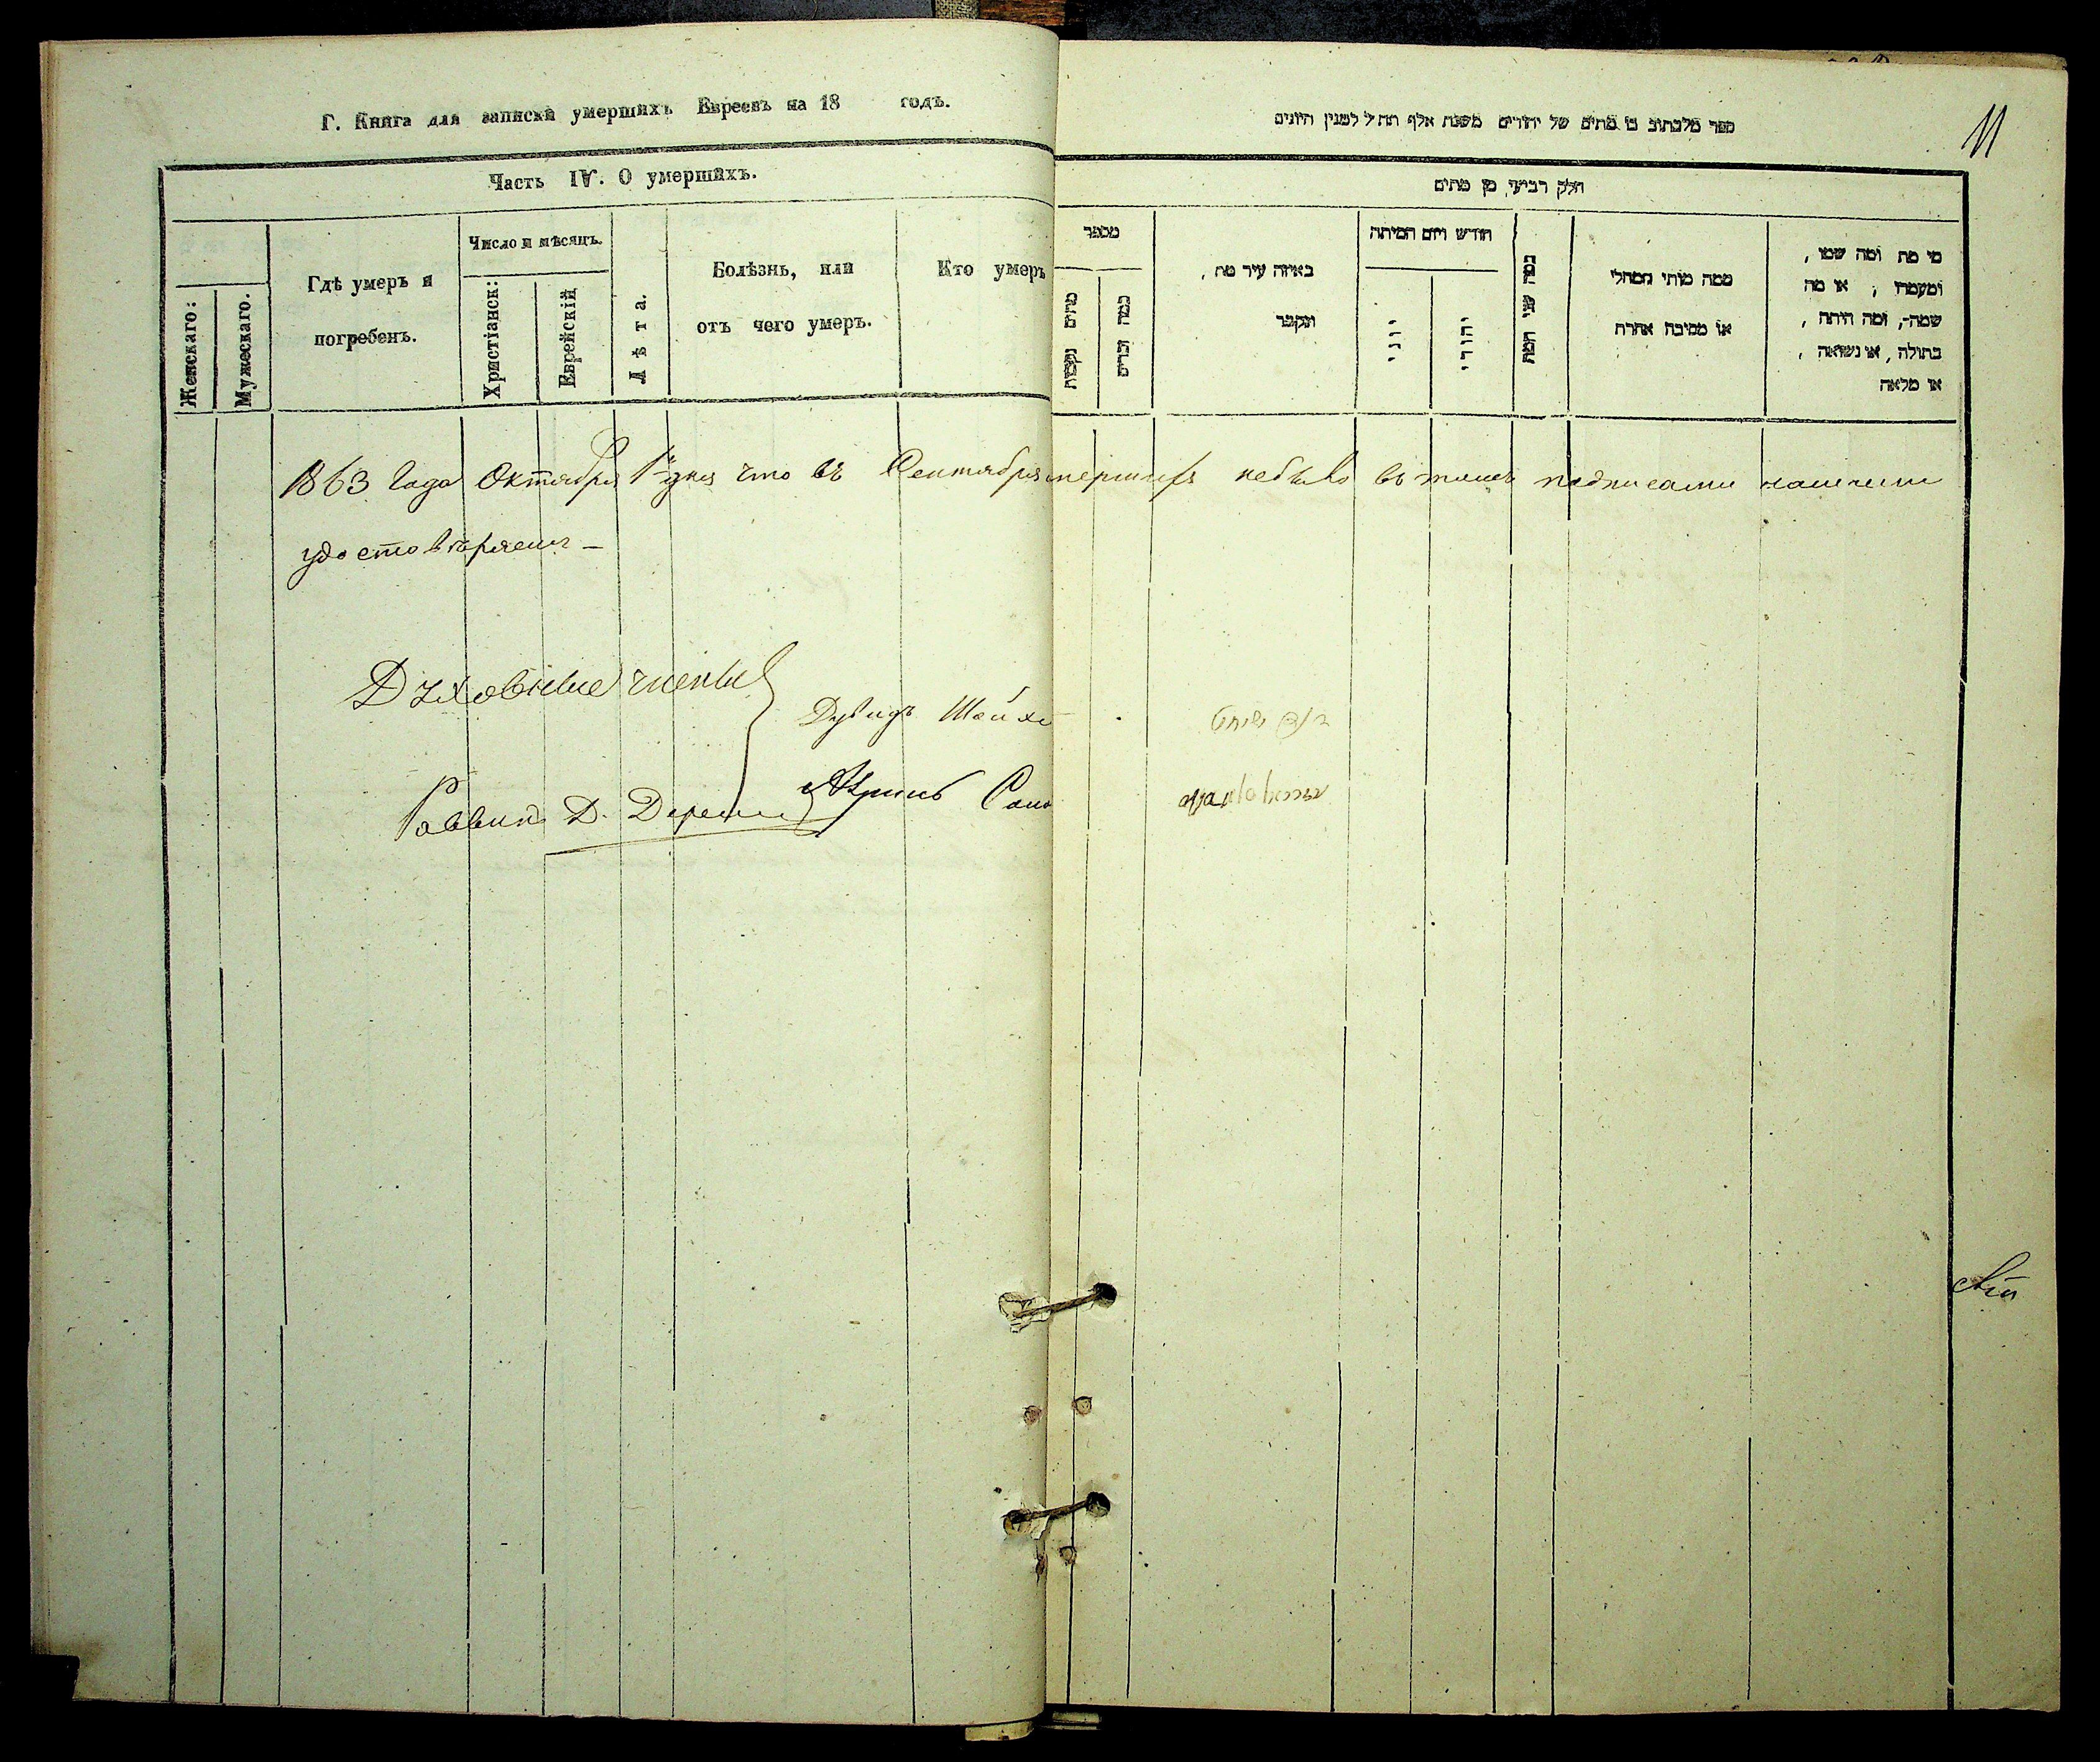 Г. Книга для записки умершихъ Евреевъ на 18 годъ.
Часть IV. О умершихъ.
Женскаго:
Мужескаго.
Гдѣ умеръ и
погребенъ.
Число и мѣсяцъ.
Христіанск:
Еврейскій
Лѣта.
Болѣзнь, или
отъ чего умеръ.
Кто умеръ
1863 Года Октября 1 дня что въ Сентябрѣ
удостовѣряемъ –
Духовные члены
Дувидъ Шойхе
Раввинъ Д.
11
ספר מלכתוב בו מתים של יהודים משנת אלף תת״ל למנין היונים
חלק רביעי, מן מתים
מספר
מתים נקבות
כמה זכרים
באיזה עיר מת,
ונקבר
חודש ויום המיתה
יוני
יהודי
כמה שני המת
ממה מותי מחלי
או מסיבה אחרת
מי מת ומה שמו,
ומעמדו, או מה
שמה, ומה היתה,
בתולה, או נשואה,
או מלאה
мершихъ небыло въ томъ подписами нашими